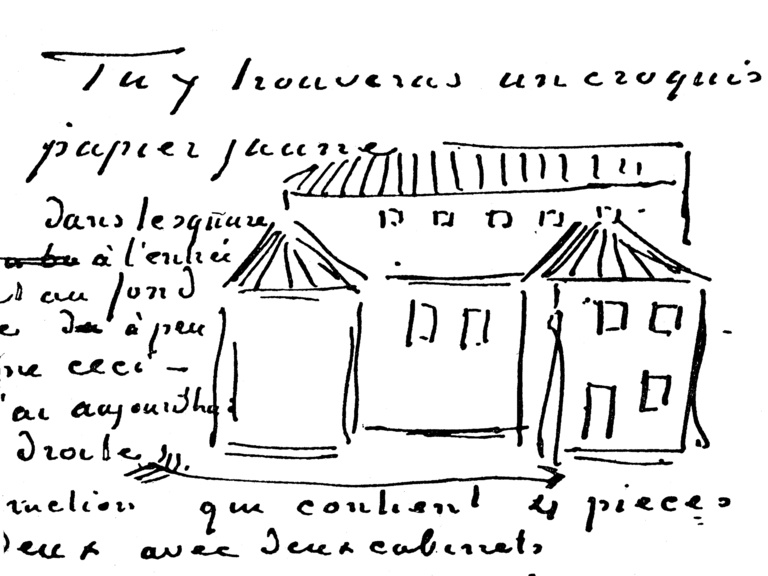 Tu y trouveras un croquis
papier jaune
dans le square
à l'entrée
au fond
à peu
ceci —
aujourdhui
droite
ruction qui contient 4 pièces
deux avec deux cabinets